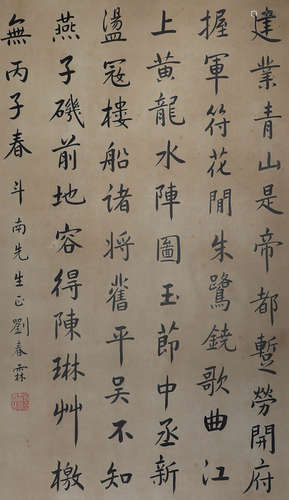 建業青山是帝都蹔勞開府
握軍符花間朱鷺鐃歌曲江
上黃龍水陣圖玉節中丞新
盪寇樓船諸將舊平吳不知
燕子磯前地容得陳琳艸檄
無丙子春
斗南先生正劉春霖